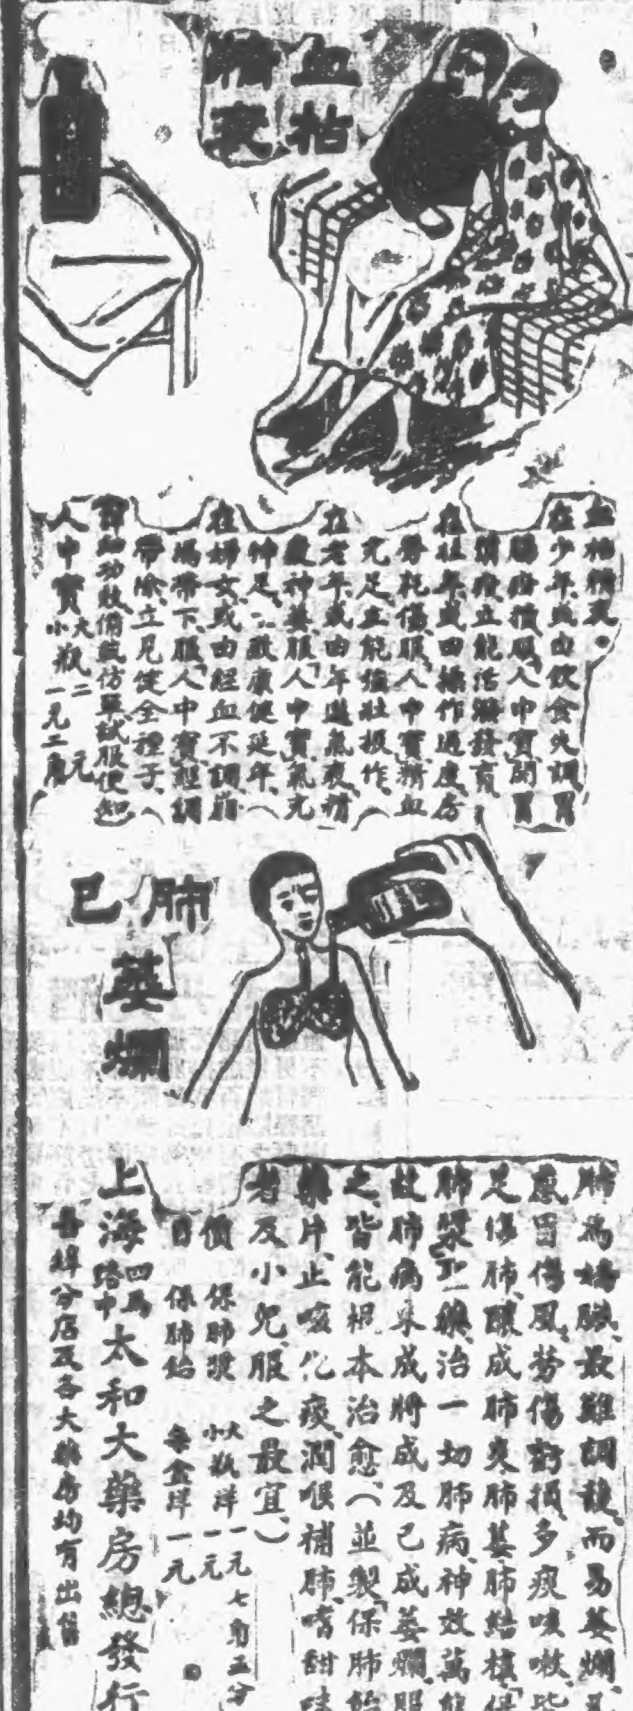 血枯
精衰
血枯精衰。
在少年或由飲食失調胃
腸虧損服人中寶開胃
消痰立能活潑發育
在壯年或因操作過度房
勞耗傷服人中寶精血
充足立能強壯操作。
在老年或由年邁氣衰精
衰神萎服人中寶氣充
神足、
康健延年。
在婦女或由經血不調崩
漏帶下服人中寶經調
帶除立見健全種子。
功效備載仿單試服便知
人中寶大瓶二元
小瓶一元二角
肺已
萎爛
肺為嬌臟最難調護而易萎爛
感冒傷風勞傷虧損多痰咳嗽皆
足傷肺釀成肺炎肺萎肺結核保
肺漿一藥治一切肺病神效萬能
故肺病未成將成及已成萎爛服
之皆能根本治愈(並製保肺飴
藥片止咳化痰潤喉補肺嗜甜味
者及小兒服之最宜)
價 保肺漿 大瓶洋一元七角五分
小瓶洋一元
目 保肺飴 每盒洋一元
上海四馬路中太和大藥房總發行
各埠分店及各大藥房均有出售